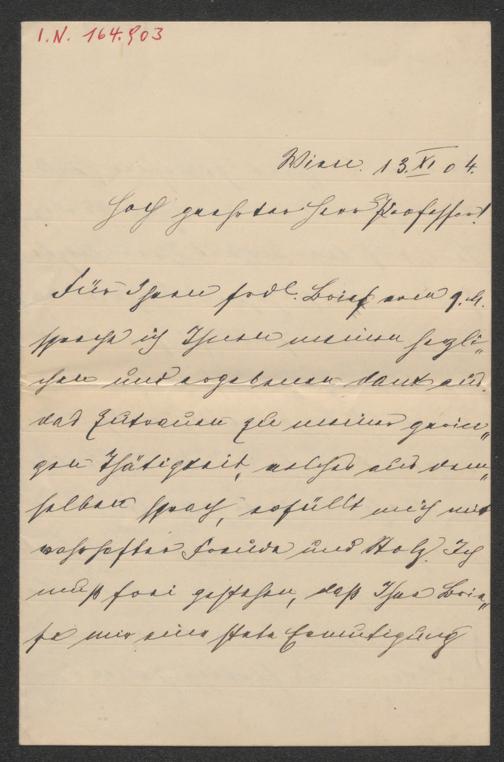 I.N. 164.903
Wien. 13.XI 04.
Hoch geehrter Herr Professor!
Für Ihren frdl. Brief vom 9. d.
spreche ich Ihnen meinen herzli-
chen und ergebenen Dank aus.
das Zutrauen zu meiner gerin-
gen Thätigkeit, welches aus dem-
selben sprach, erfüllt mich mit
wahrhafter Freude und Stolz. Ich
muß frei gestehen, daß Ihre Brie-
fe mir eine stete Ermutigung